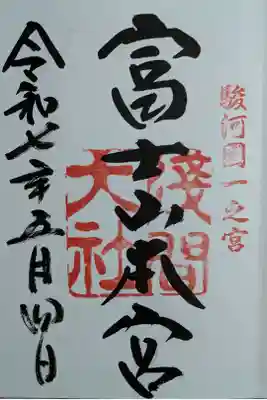 駿河國一之宮
富士山本宮
淺間大社
令和七年五月四日